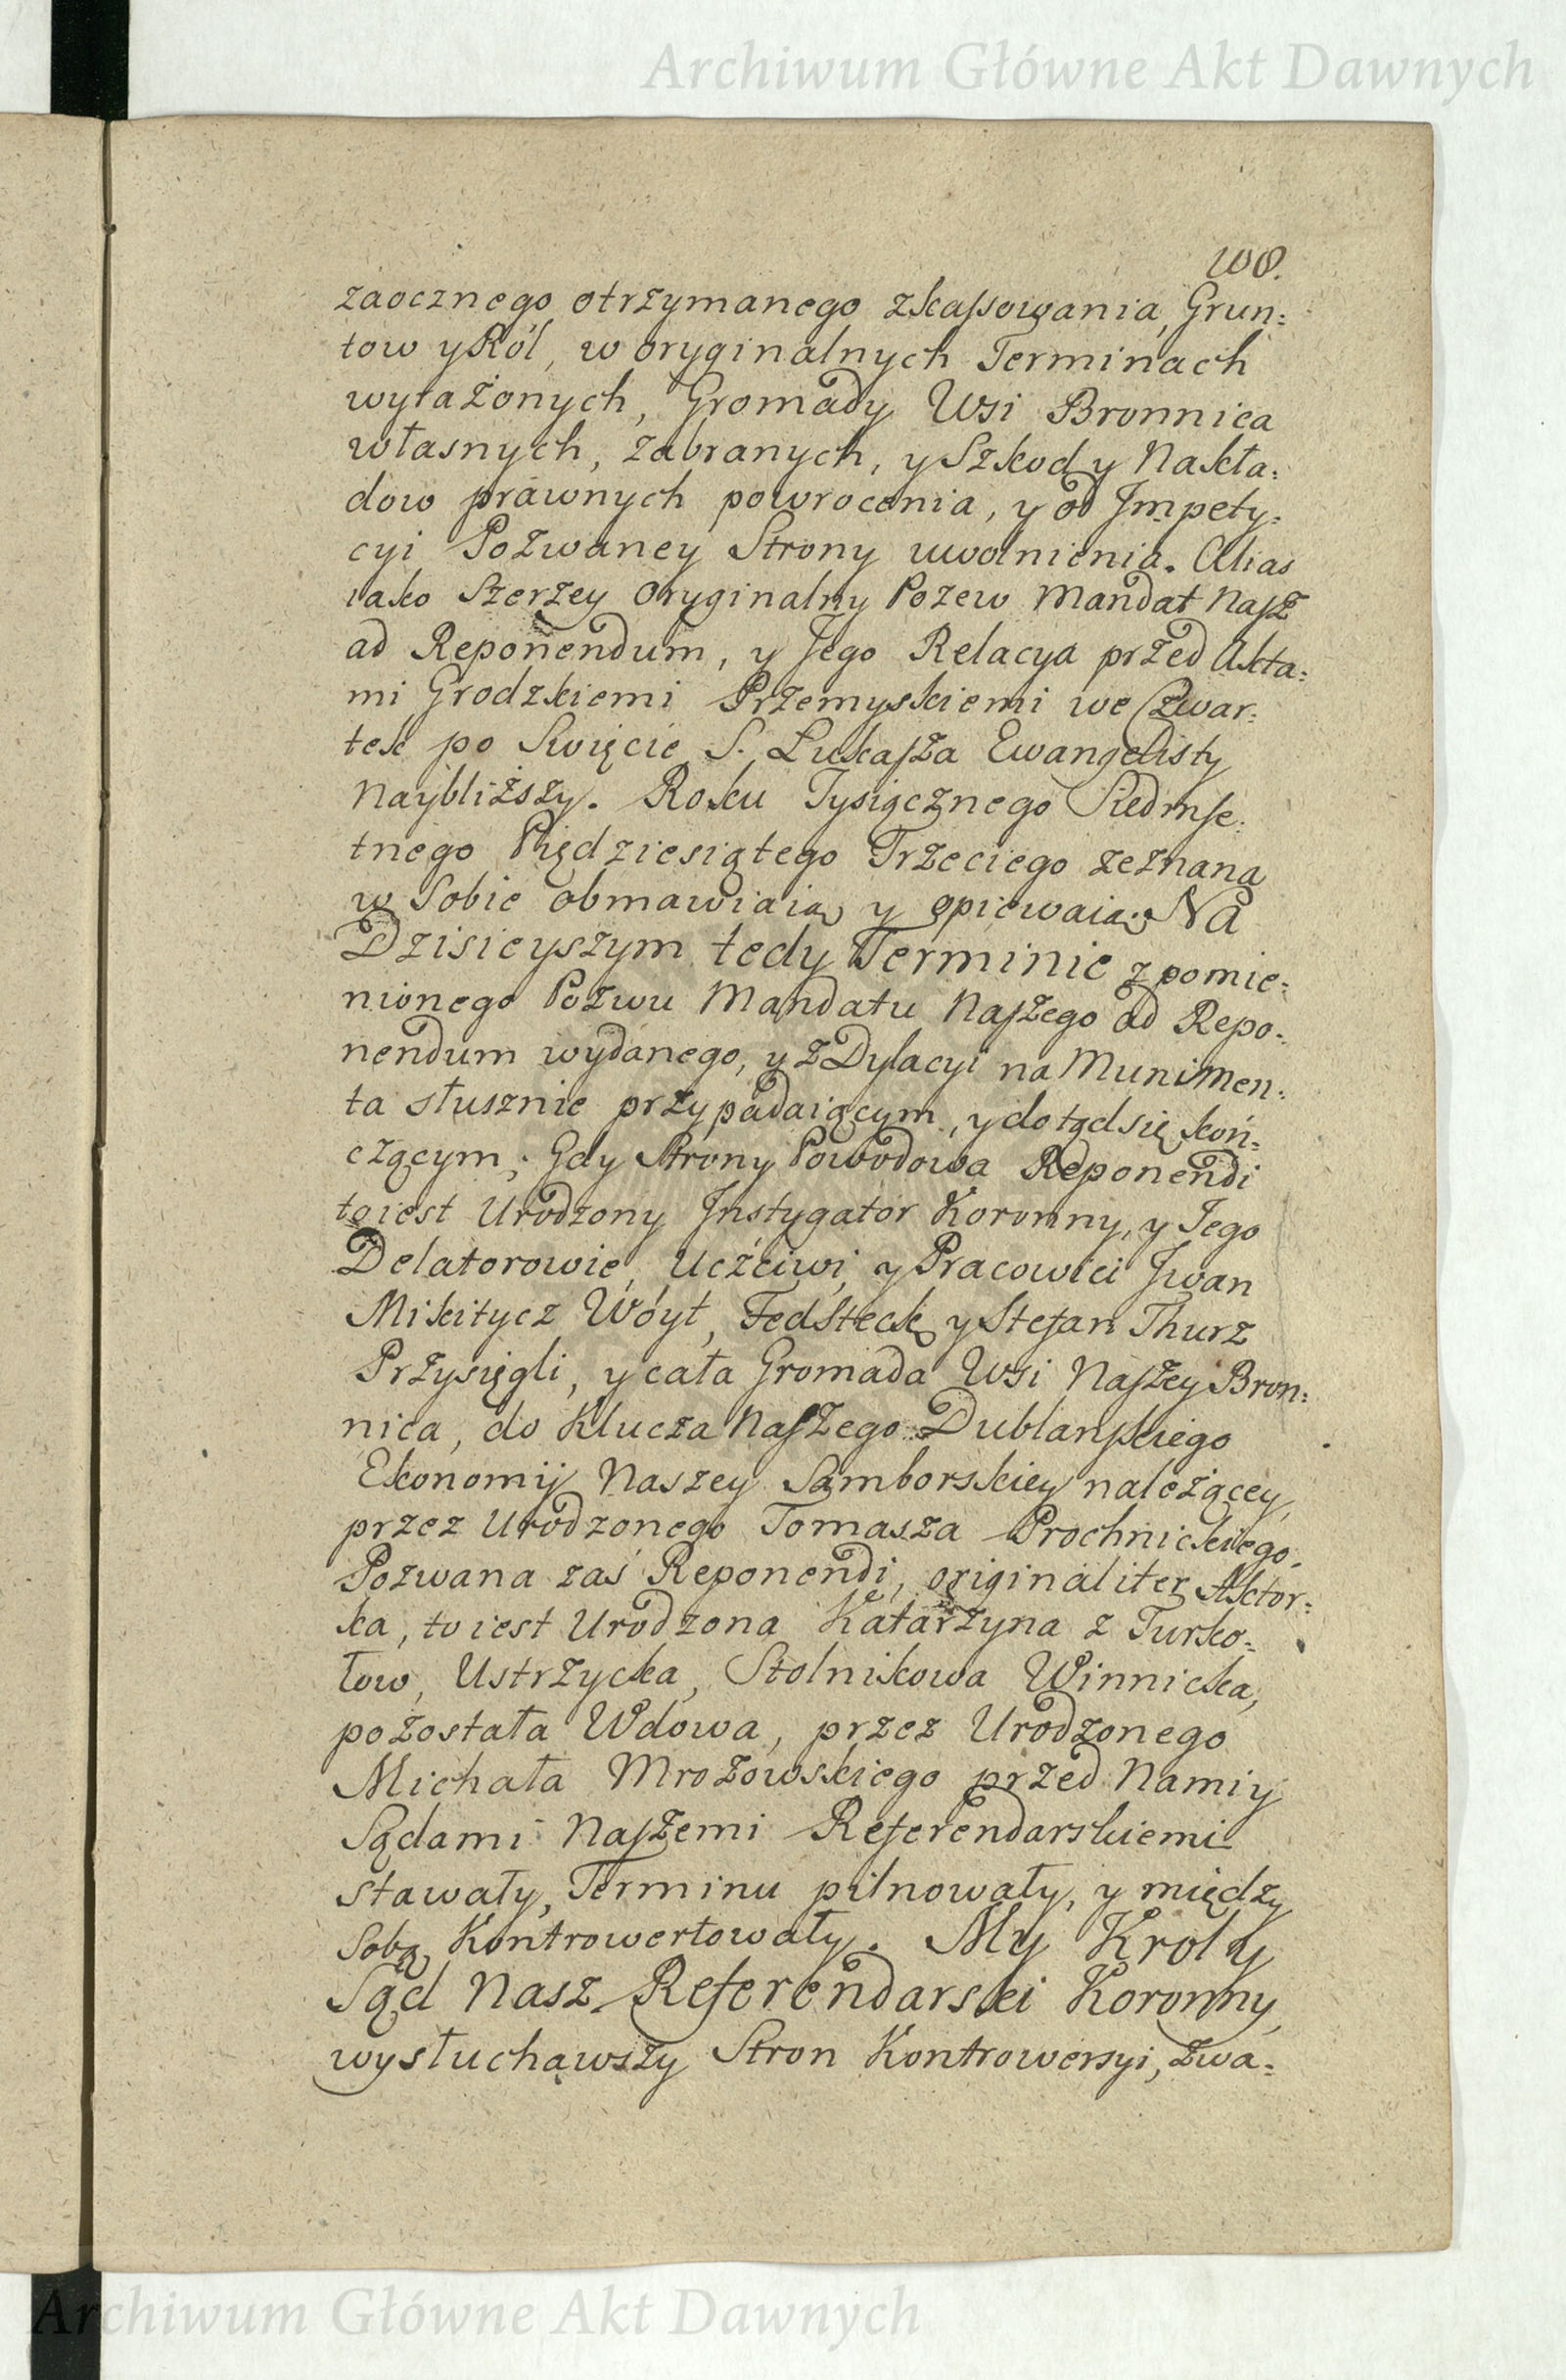 Archiwum Główne Akt Dawnych
100.
zaocznego otrzymanego zkassowania, Grun:
tow y Ról, w oryginalnych Terminach
wyrażonych, Gromady Wsi Bronnica
własnych, zabranych, y Szkod y Nakła:
dow prawnych powrocenia, y od Impety:
cyi Pozwaney Strony uwolnienia. Alias
iako szerzey Oryginalny Pozew Mandat Nasz
ad Reponendum, y Jego Relacya przed Akta:
mi Grodzkiemi Przemyskiemi we Czwar:
tek po Swięcie S. Łukasza Ewangelisty
Naybliższy. Roku Tysiącznego Siedmse:
tnego Piędziesiątego Trzeciego zeznana
w Sobie obmawiaią y opiewaią. Na
Dzisieyszym tedy Terminie z pomie:
nionego Pozwu Mandatu Naszego ad Repo:
nendum wydanego, y z Dylacyi na Munimen:
ta słusznie przypadaiącym, y dotąd się koń:
czącym, Gdy Strony Powodowa Reponendi
to iest Urodzony Instygator Koronny, y Jego
Delatorowie, Uczciwi, y Pracowici Iwan
Mikitycz Wóyt, Fed Steck, y Stefan Thurz
Przysięgli, y cała Gromada Wsi Naszey Bron:
nica, do Klucza Naszego Dublanskiego
Ekonomij Naszey Samborskiey należącey,
przez Urodzonego Tomasza Prochnickiego.
Pozwana zaś Reponendi, originaliter Aktor:
ka, to iest Urodzona Katarzyna z Turko:
łow, Ustrzycka, Stolnikowa Winnicka,
pozostała Wdowa, przez Urodzonego
Michała Mrozowskiego przed Nami y
Sądami Naszemi Referendarskiemi
stawały, Terminu pilnowały, y między
Sobą Kontrowertowały. My Krol y
Sąd Nasz Referendarski Koronny,
wysłuchawszy Stron Kontrowersyi, zwa:
Archiwum Główne Akt Dawnych